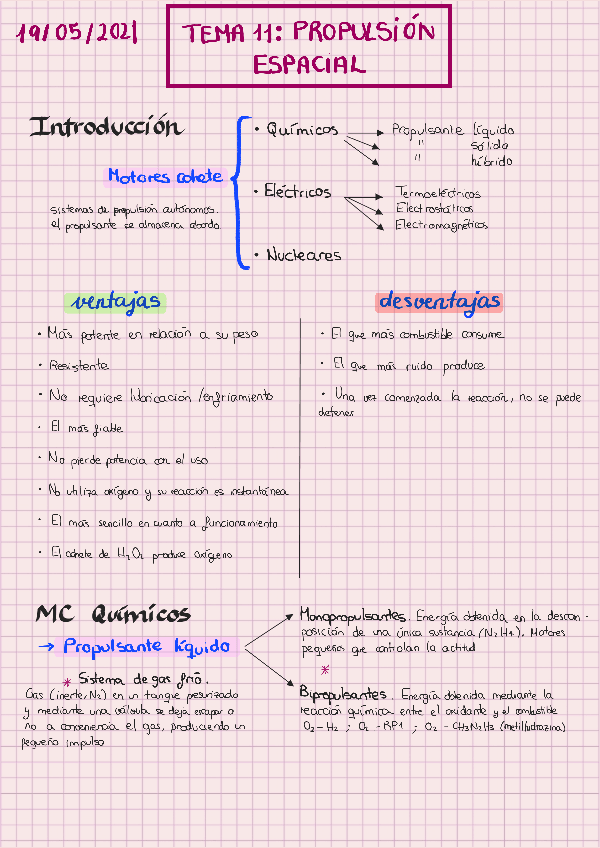 19/05/2021
TEMA 11: PROPULSIÓN
ESPACIAL
Introducción
Motores cohete
sistemas de propulsión autónomos.
el propulsante se almacena abordo.
• Químicos
Propulsante líquido
" sólido
" híbrido
• Eléctricos
Termoeléctricos
Electrostáticos
Electromagnéticos
• Nucleares
ventajas
• Más potente en relación a su peso
• Resistente
• No requiere lubricación /enfriamiento
• El más fiable
• No pierde potencia con el uso
• No utiliza oxígeno y su reacción es instantánea
• El más sencillo en cuanto a funcionamiento
• El cohete de H2O2 produce oxígeno
desventajas
• El que más combustible consume
• El que más ruido produce
• Una vez comenzada la reacción, no se puede
detener
MC Químicos
→ Propulsante líquido
* Sistema de gas frío.
Gas (inerte, N2) en un tanque presurizado
y mediante una válvula se deja escapar o
no a conveniencia el gas, produciendo un
pequeño impulso
Monopropulsantes. Energía obtenida en la descom-
posición de una única sustancia (N2H4). Motores
pequeños que controlan la actitud
*
Bipropulsantes. Energía obtenida mediante la
reacción química entre el oxidante y el combustible
O2-H2 ; O2 -RP1 ; O2 - CH3N2H3 (metilhidrazina)